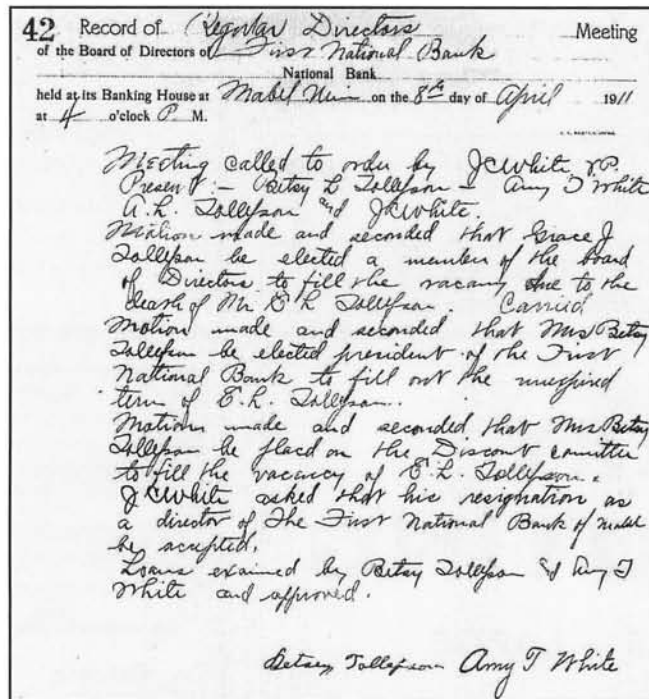 42 Record of Regular Directors Meeting
of the Board of Directors of First National Bank
National Bank
held at its Banking House at Mabel Minn on the 8th day of April 1911
at 4 o'clock P. M.
Meeting called to order by JCWhite V.P.
Present:- Betsy L Tollefson - Amy T White
A.L. Tollefson and JCWhite.
Motion made and seconded that Grace J
Tollefson be elected a member of the board
of Directors to fill the vacancy due to the
death of Mr E L Tollefson. Carried
Motion made and seconded that Mrs Betsy
Tollefson be elected president of the First
National Bank to fill out the unexpired
term of E.L. Tollefson.
Motion made and seconded that Mrs Betsy
Tollefson be placd on the Discount comitter
to fill the vacancy of E.L. Tollefson.
JCWhite asked that his resignation as
a director of The First National Bank of Mabel
be accepted.
Loans examined by Betsy Tollefson & Amy T
White and approved.
Betsey Tollefson Amy T White